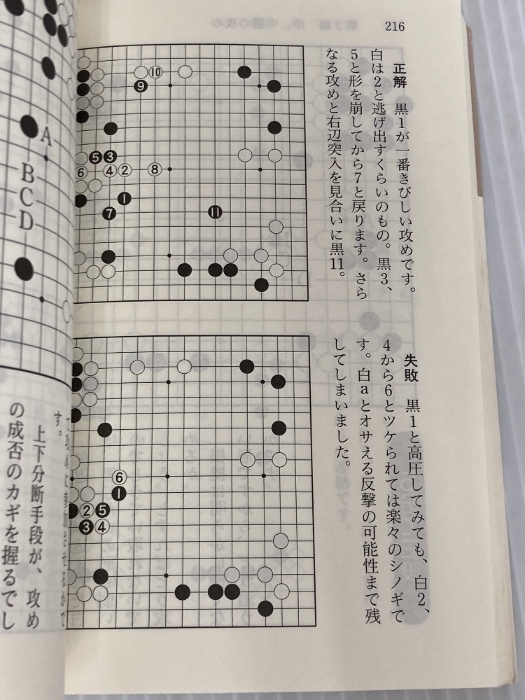 216
正解 黒1が一番きびしい攻めです。
白は2と逃げ出すくらいのもの。黒3、
5と形を崩してから7と戻ります。さら
なる攻めと右辺突入を見合いに黒11。
⑩
❾
❺❸
⑥④②⑧
❶
❼
⓫
失敗 黒1と高圧してみても、白2、
4から6とツケられては楽々のシノギで
す。白aとオサえる反撃の可能性まで残
してしまいました。
⑥
❶
②❺
❸④
A
B
C
D
す。
上下分断手段が、攻め
の成否のカギを握るでし